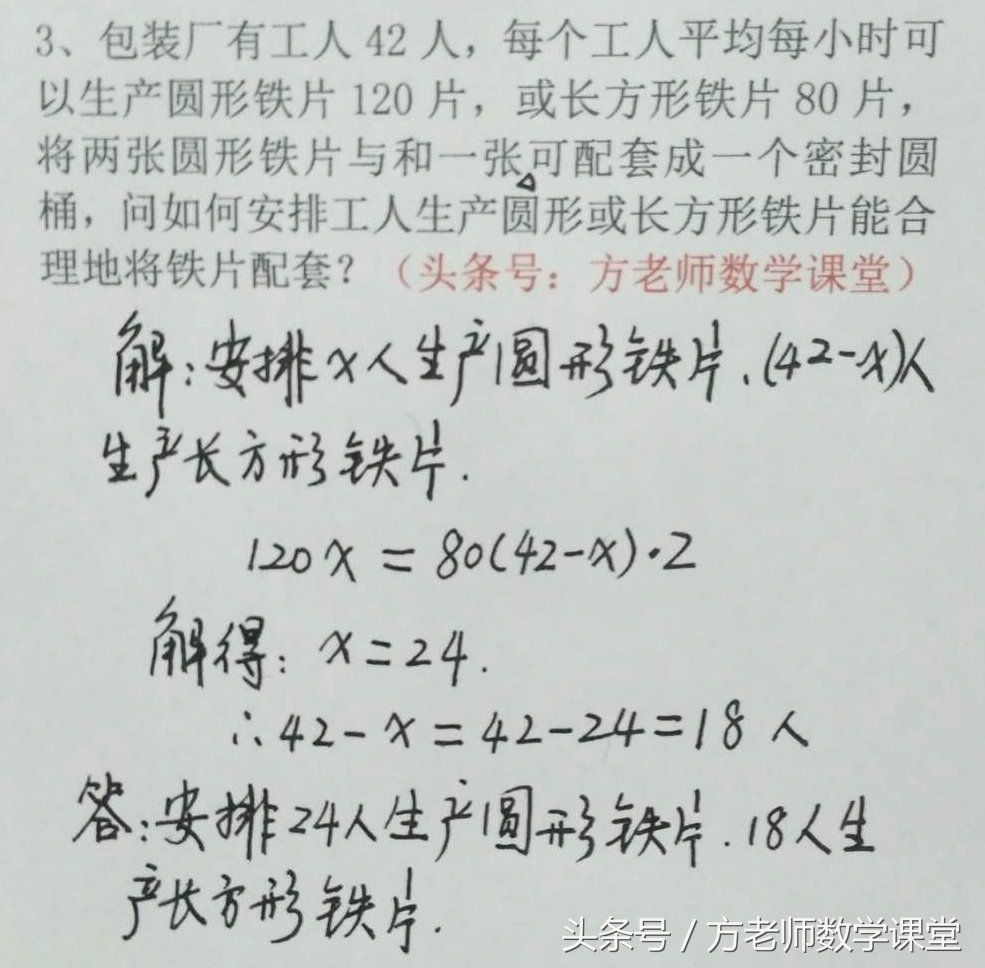 3、包装厂有工人 42 人，每个工人平均每小时可
以生产圆形铁片 120 片，或长方形铁片 80 片，
将两张圆形铁片与和一张可配套成一个密封圆
桶，问如何安排工人生产圆形或长方形铁片能合
理地将铁片配套？（头条号：方老师数学课堂）
解：安排x人生产圆形铁片、(42-x)人
生产长方形铁片.
120x = 80(42-x)·2
解得：x=24.
∴42-x=42-24=18 人
答：安排24人生产圆形铁片.18人生
产长方形铁片.
头条号 / 方老师数学课堂